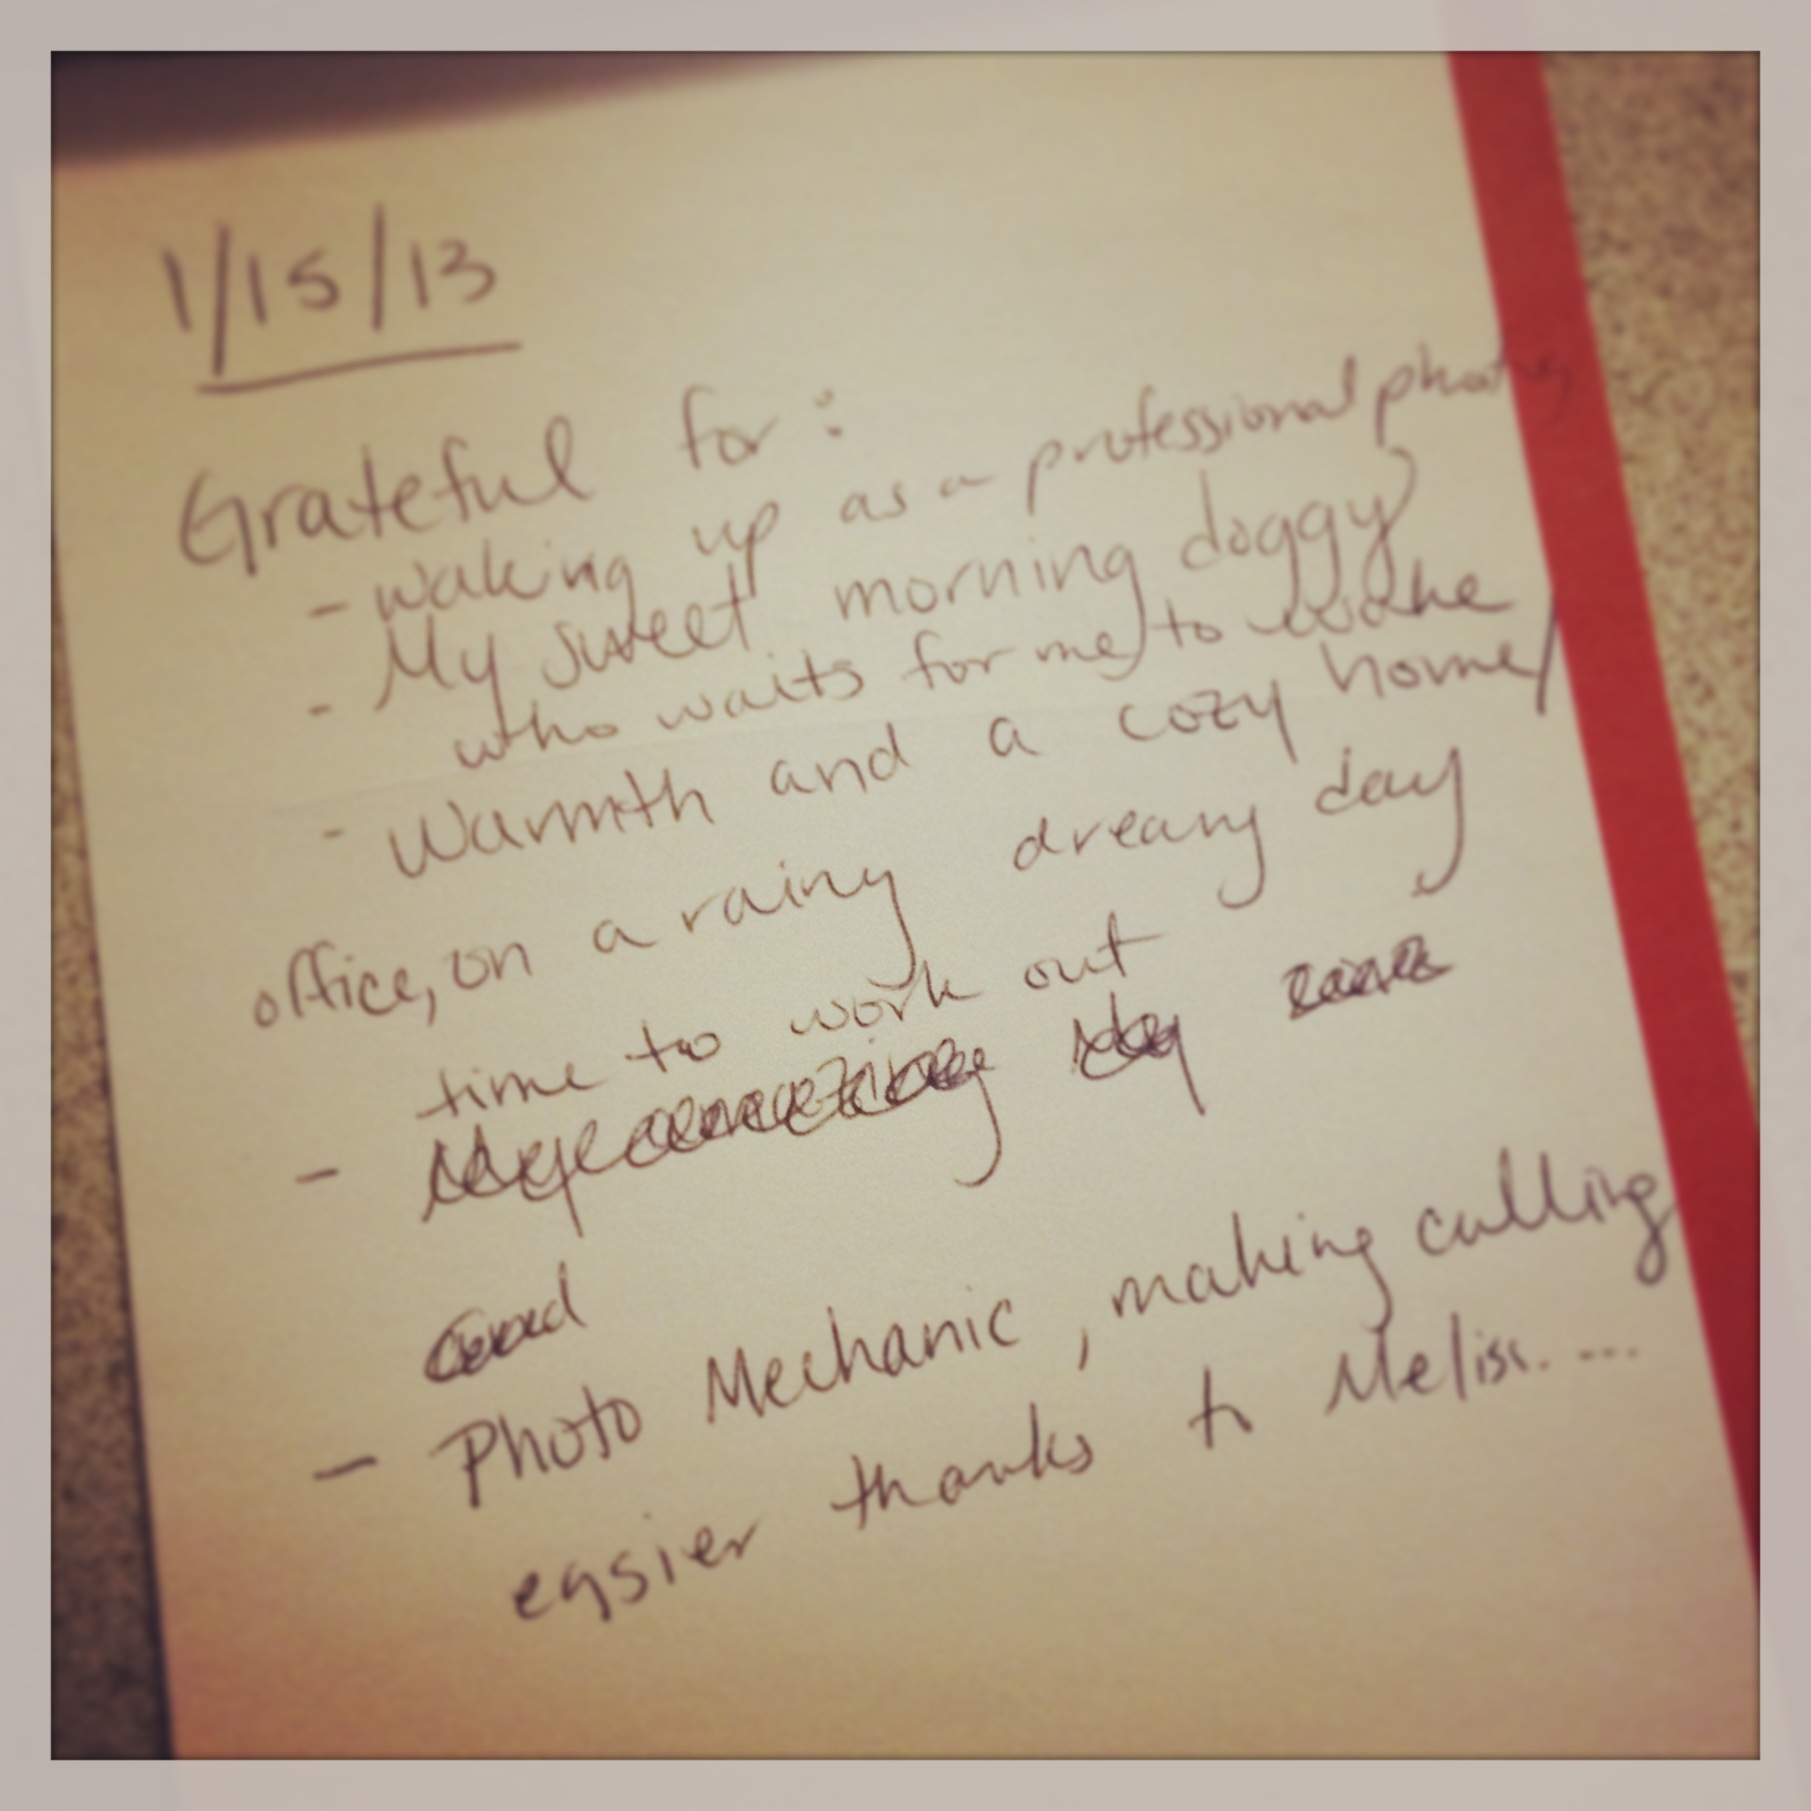 1/15/13
Grateful for:
- waking up as a professional
- My sweet morning doggy
who waits for me to wake
- Warmth and a cozy home/
office, on a rainy dreary day
time to work out
-
- Photo Mechanic, making culling
easier thanks to